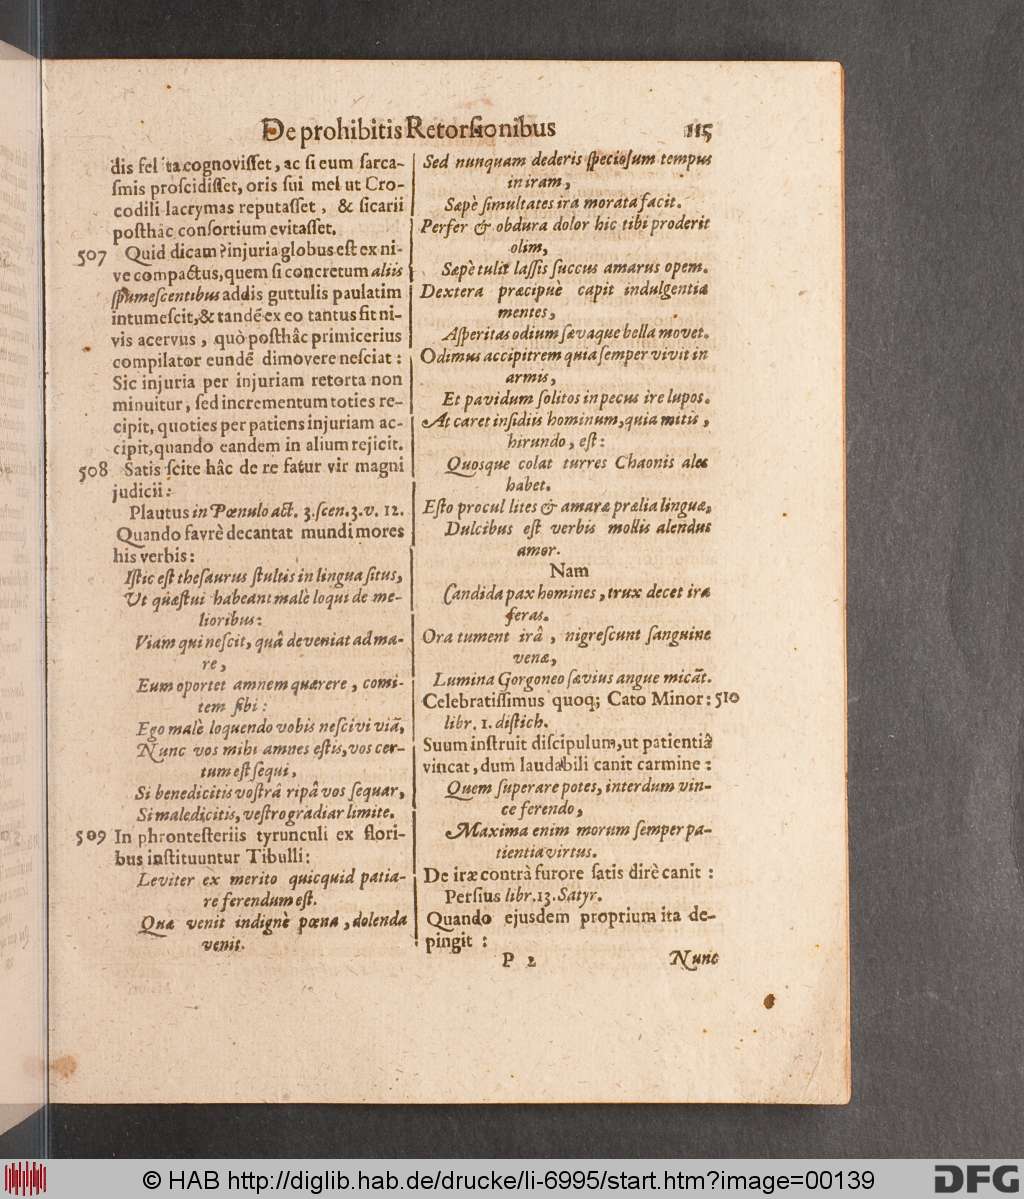 De prohibitis Retorsionibus 115
dis fel ita cognovisset, ac si eum sarca-
smis proscidisset, oris sui mel ut Cro-
codili lacrymas reputasset, & sicarii
posthac consortium evitasset.
507 Quid dicam? injuria globus est ex ni-
ve compactus, quem si concretum aliis
spumescentibus addis guttulis paulatim
intumescit, & tandẽ ex eo tantus fit ni-
vis acervus, quò posthâc primicerius
compilator eundẽ dimovere nesciat:
Sic injuria per injuriam retorta non
minuitur, sed incrementum toties re-
cipit, quoties per patiens injuriam ac-
cipit, quando eandem in alium rejicit.
508 Satis scite hâc de re fatur vir magni
judicii:
Plautus in Pœnulo act. 3. scen. 3. v. 12.
Quando favrè decantat mundi mores
his verbis:
Istic est thesaurus stultis in lingua situs,
Ut quæstui habeant malè loqui de me-
lioribus:
Viam qui nescit, quâ deveniat ad ma-
re,
Eum oportet amnem quærere, comi-
tem sibi:
Ego malè loquendo vobis nescivi viã,
Nunc vos mihi amnes estis, vos cer-
tum est sequi,
Si benedicitis vostrâ ripâ vos sequar,
Si maledicitis, vestro gradiar limite.
509 In phrontesteriis tyrunculi ex flori-
bus instituuntur Tibulli:
Leviter ex merito quicquid patia-
re ferendum est.
Quæ venit indignè pœna, dolenda
venit.
Sed nunquam dederis speciosum tempus
in iram,
Sæpè simultates ira morata facit.
Perfer & obdura dolor hic tibi proderit
olim,
Sæpè tulit lassis succus amarus opem.
Dextera præcipuè capit indulgentia
mentes,
Asperitas odium sævaque bella movet.
Odimus accipitrem quia semper vivit in
armis,
Et pavidum solitos in pecus ire lupos.
At caret insidiis hominum, quia mitis,
hirundo, est:
Quosque colat turres Chaonis ales
habet.
Esto procul lites & amaræ prælia linguæ,
Dulcibus est verbis mollis alendus
amor.
Nam
Candida pax homines, trux decet ira
feras.
Ora tument irâ, nigrescunt sanguine
venæ,
Lumina Gorgoneo sævius angue micãt.
Celebratissimus quoq; Cato Minor: 510
libr. 1. distich.
Suum instruit discipulum, ut patientiâ
vincat, dum laudabili canit carmine:
Quem superare potes, interdum vin-
ce ferendo,
Maxima enim morum semper pa-
tientia virtus.
De iræ contrà furore satis dirè canit:
Persius libr. 13. Satyr.
Quando ejusdem proprium ita de-
pingit:
P 2 Nunc
© HAB http://diglib.hab.de/drucke/li-6995/start.htm?image=00139
DFG